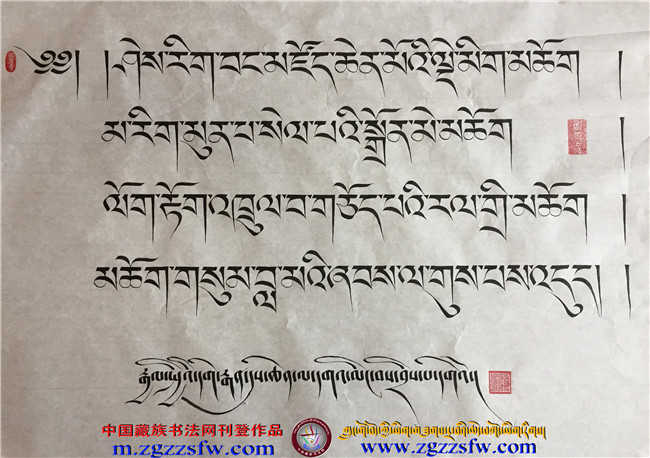 ༄༅། །ཤེས་རིག་བང་མཛོད་ཆེན་མོའི་ལྡེ་མིག་མཆོག །
མ་རིག་མུན་པ་སེལ་པའི་སྒྲོན་མེ་མཆོག །
ལོག་རྟོག་འཁྲུལ་བ་གཅོད་པའི་རལ་གྲི་མཆོག །
མཆོག་གསུམ་བླ་མའི་ཞབས་ལ་གུས་པས་འདུད། །
中国藏族书法网刊登作品
m.zgzzsfw.com
www.zgzzsfw.com